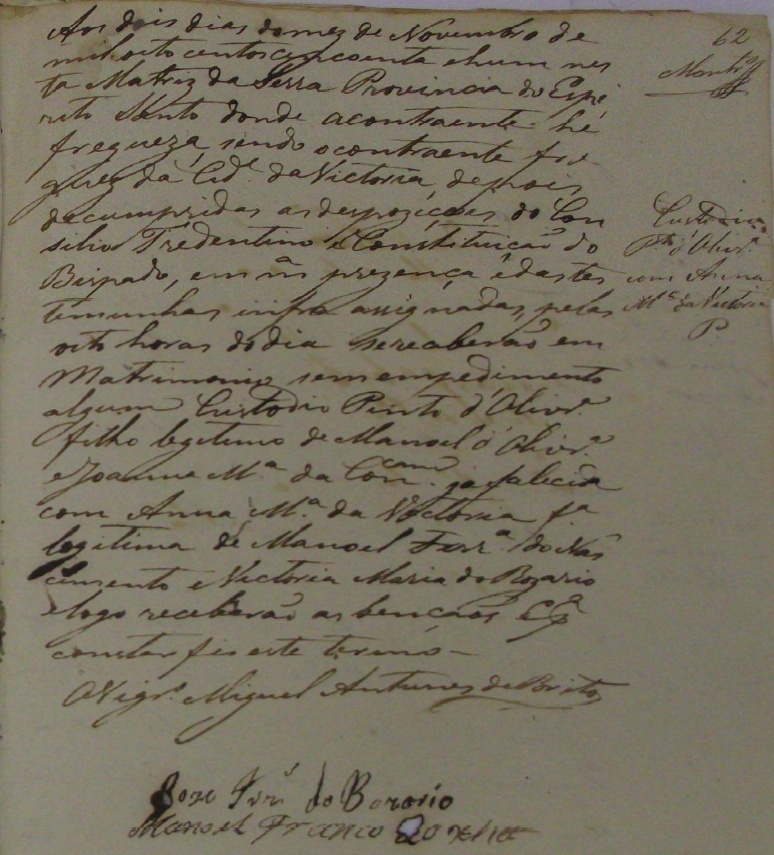 Aos dois dias do mez de Novembro de
mil oito centos cencoenta ehum nes
ta Matriz da Serra Provincia do Espi
rito Santo donde acontraente he
fregueza, sendo ocontraente fre
guez da Cid.e da Victoria, depois
decumpridas asdespozições do Con
silio Tredentino, e Constituição do
Bispado, em m.a prezença, edastes
temunhas infra assignadas, pelas
oito horas dodia sereceberão em
Matrimonio sem empedimento
algum Custodio Pinto d'Olivr.a
filho legitimo de Manoel d'Olivr.a
e Joanna M.a da Con.cam já falecida
com Anna M.a da Victoria f.a
legitima de Manoel Ferr.a do Nas
cimento e Victoria Maria do Rozario
elogo receberão as bencãos E p.a
constar fis este termo
O Vigr.o Miguel Antunes de Brito
do
Manoel Franco
62
Custodio
P.to d'Olivr.a
com Anna
M.a da Victoria
P.